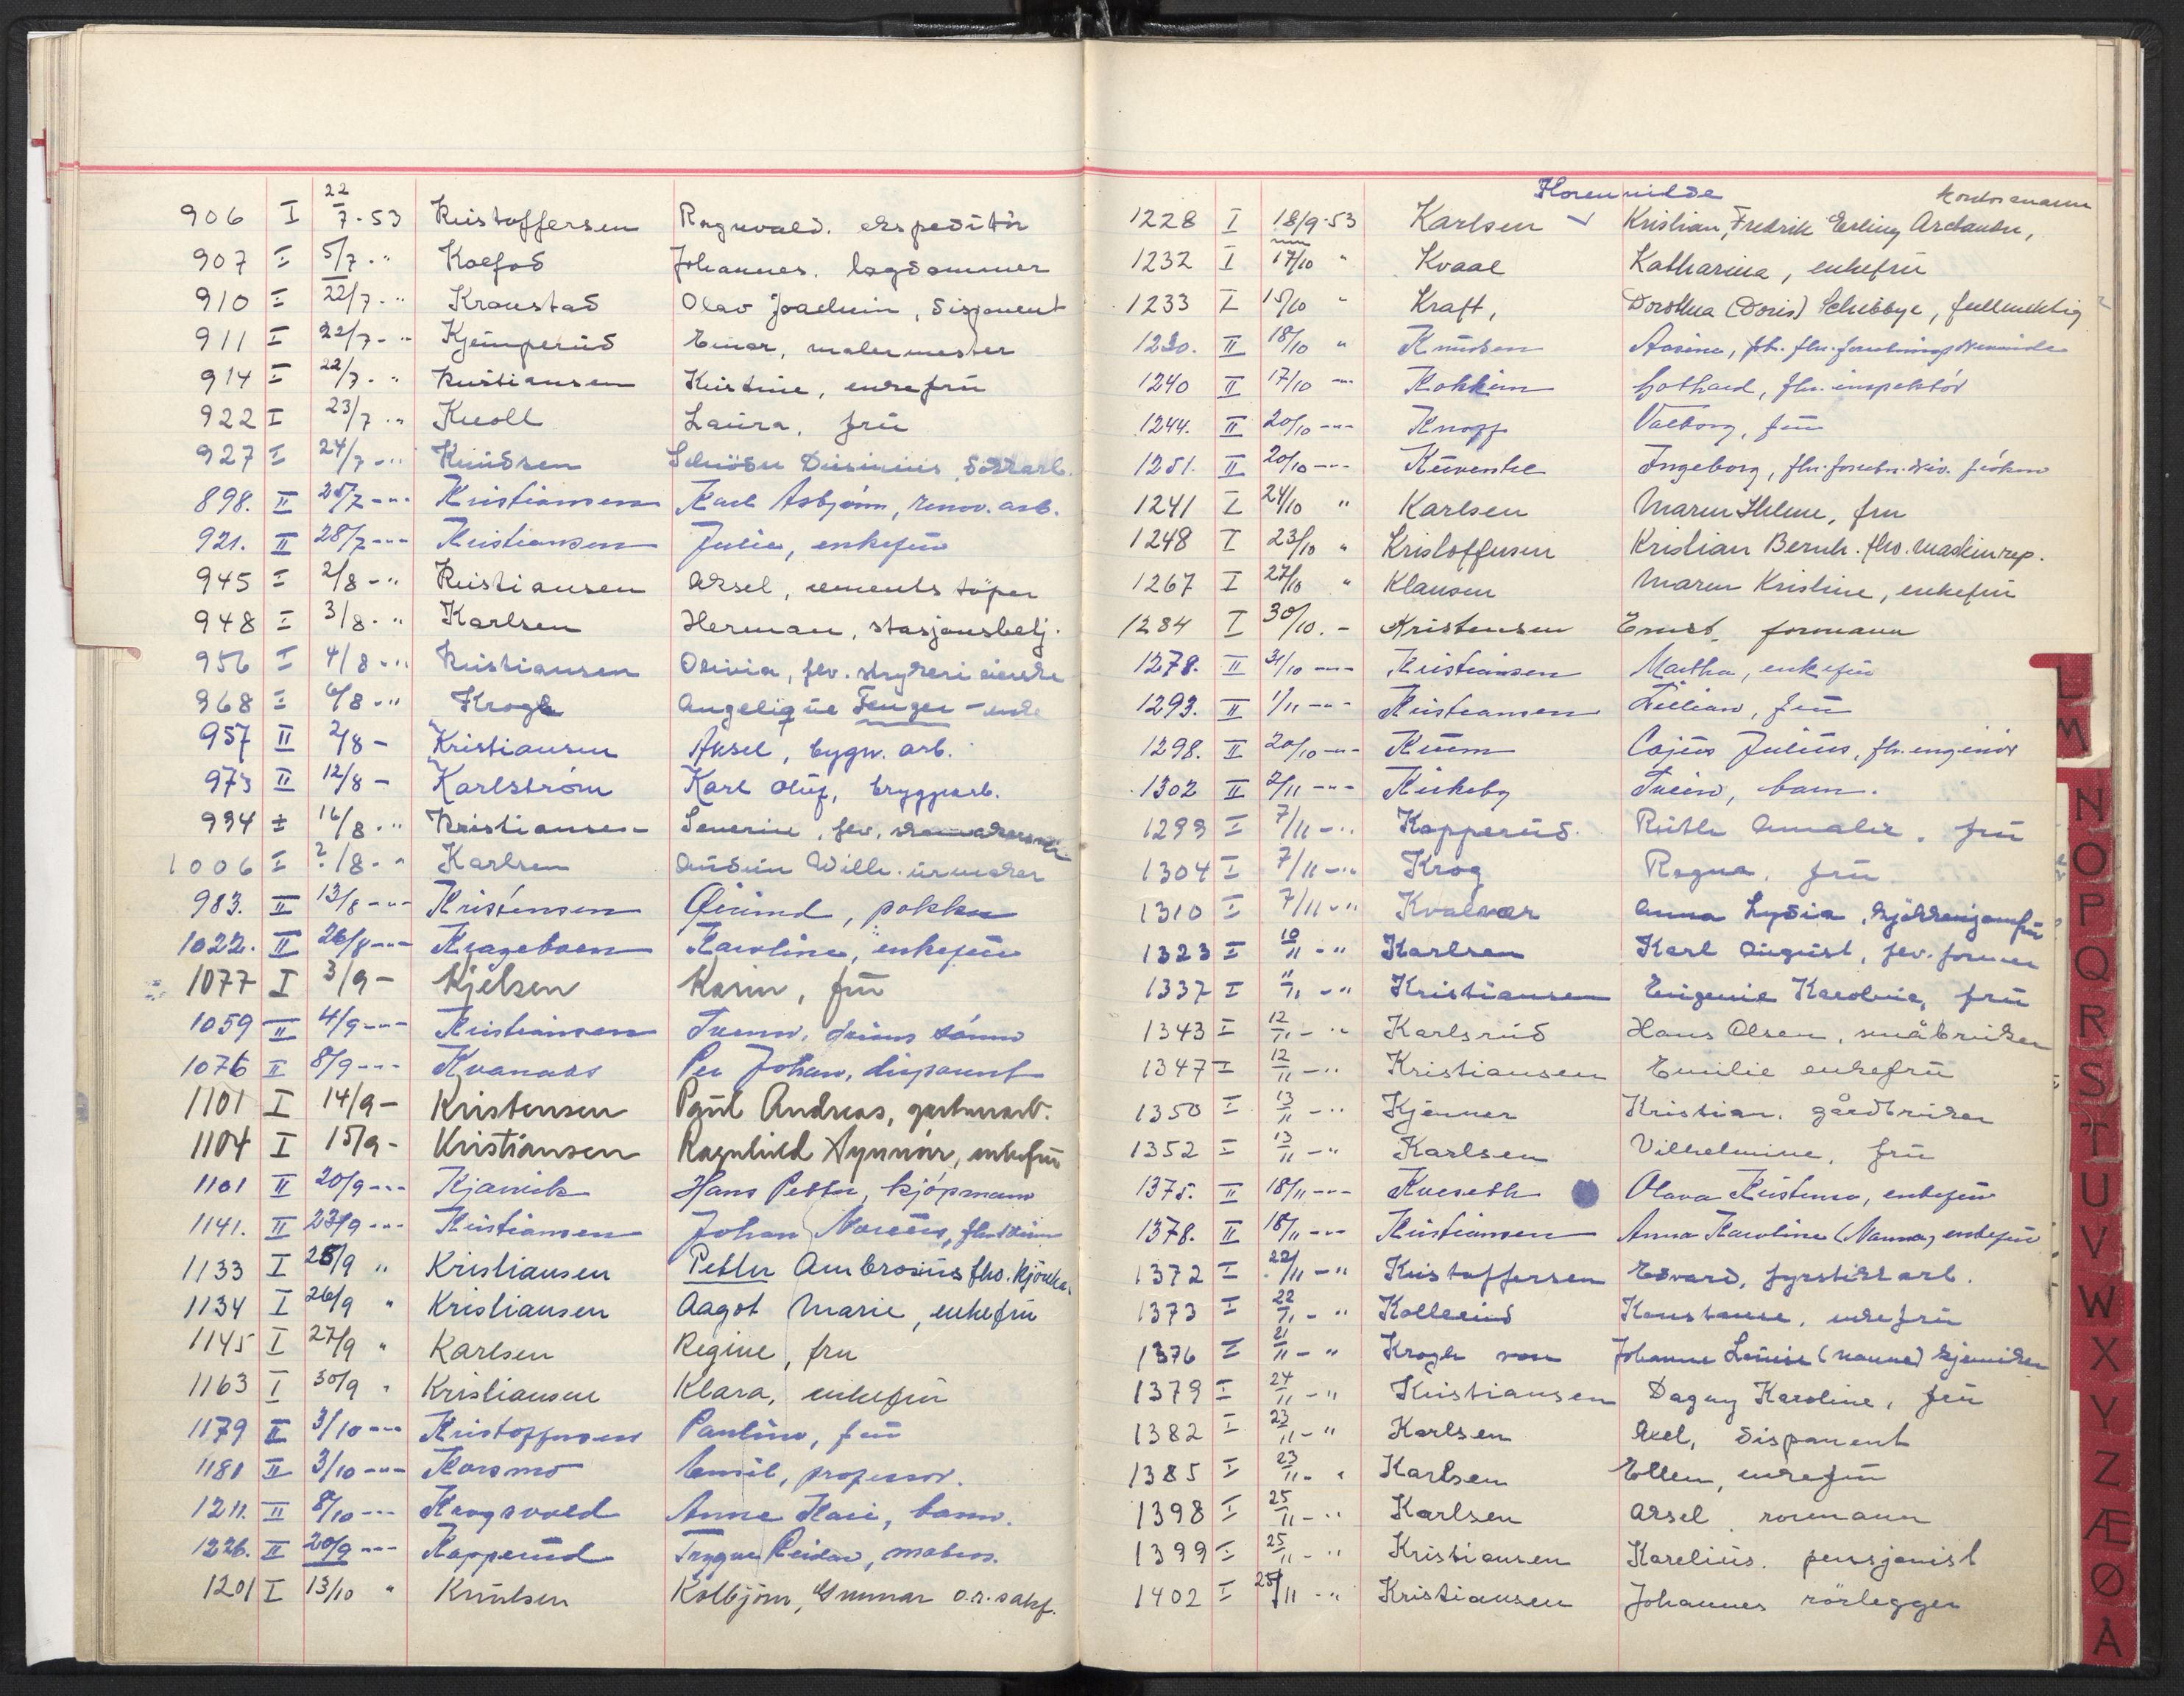 906 I 22/7-53 Kristoffersen Ragnvald. ekspeditør
907 I 5/7-" Koefod Johannes. lagdommer
910 I 22/7-" Kronstad Olav Joachim, disponent
911 I 22/7-" Kjemperud Einar, malermester
914 I 22/7-" Kristiansen Kristine, enkefru
922 I 23/7-" Knoll Laura, fru
927 I 24/7-" Knudsen
898. II 25/7-"- Kristiansen Karl Asbjörn, renov. arb.
921. II 28/7-"- Kristiansen Julie, enkefru
945 I 2/8-" Kristiansen Aksel, cementstöper
948 I 3/8-" Karlsen Herman, stasjonsbetj.
956 I 4/8-" Kristiansen Olivia, fhv. strykerieierske
968 I 6/8-" Krogh Angelique Fenger - enke
957 II 2/8- Kristiansen Aksel, bygn. arb.
973 II 12/8- Karlström Karl Oluf, bryggarb.
994 I 16/8-" Kristiansen Severin, fhv.
1006 I ?/8-" Karlsen Audun Wilh. urmaker
983. II 13/8-"- Kristensen Öivind, pokker
1022. II 26/8-"- Krageboen Karoline, enkefru
1077 I 3/9- Kjelsen Karin, fru
1059 II 4/9-"- Kristiansen
1076 II 8/9-"- Kvanaas Per Johan, disponent
1101 I 14/9- Kristensen Paul Andreas, gartnerarb.
1104 I 15/9- Kristiansen Ragnhild Synnöv, enkefru
1101 II 20/9-"- Kjamik Hans Petter, kjöpmann
1141. II 23/9-"- Kristiansen Johan
1133 I 25/9 " Kristiansen Petter Ambrosius fhv.
1134 I 26/9 " Kristiansen Aagot Marie, enkefru
1145 I 27/9 " Karlsen Regine, fru
1163 I 30/9 " Kristiansen Klara, enkefru
1179 II 3/10-"- Kristoffersen Pauline, fru
1181 II 3/10-"- Korsmo Emil, professor.
1211. II 8/10-"- Krogsvold Anne Kari, barn.
1226. II 20/9-"- Kopperud Trygve Reidar, matros.
1201 I 13/10 " Knutsen Kolbjörn, Gunnar o.r.sakf.
Florennilde kontormann
1228 I 18/9-53 Karlsen Kristian, Fredrik Erling Arctander,
1232 I 17/10 " Kvaal Katharina, enkefru
1233 I 15/10 " Kraft, Dorothea (Doris) Schibbye, fullmektig
1220. II 18/10 " Knudsen Aasine,
1240 II 17/10 -"- Kokkim Gothard, fhv. inspektör
1244. II 20/10-"- Knopf Valborg, fru
1251. II 20/10-"- Ingeborg,
1241 I 24/10 " Karlsen Maren Helene, fru
1248 I 23/10 " Kristoffersen Kristian Bernh. fhv. maskinrep.
1267 I 27/10 " Klausen Maren Kristine, enkefru
1284 I 30/10. - Kristensen Ernst, formann
1278. II 31/10-"- Kristiansen Martha, enkefru
1293. II 1/11-"- Kristiansen Lillian, fru
1298. II 20/10-"- Krum Cajus Julius, fhv. ingeniör
1302 II 2/11-"- Kirkeby barn.
1299 I 7/11-" Kopperud. Ruth Amalie, fru
1304 I 7/11-" Krog Ragna, fru
1310 I 7/11-" Kvalvær Anna Lydia, kjökkenjomfru
1323 I 10/11-" Karlsen Karl August, fhv. former
1337 I "/11-" Kristiansen Eugenie Karoline, fru
1343 I 12/11-" Karlsrud Hans Olsen, småbruker
1347 I 12/11-" Kristiansen Emilie enkefru
1350 I 13/11-" Kjenner Kristian. gårdbruker
1352 I 13/11-" Karlsen Vilhelmine, fru
1375. II 18/11-"- Kveseth Olava Kristense, enkefru
1378. II 18/11-"- Kristiansen Anna Karoline (Nanna) enkefru
1372 I 22/11-" Kristoffersen Edvard, fyrstikkarb.
1373 I 22/11-" Kollerud Konstanse, enkefru
1376 I 21/11-" Krogh von Johanne Louise (Nanne) kjemiker
1379 I 24/11-" Kristiansen Dagny Karoline, fru
1382 I 23/11-" Karlsen Axel, disponent
1385 I 23/11-" Karlsen Ellen, enkefru
1398 I 25/11-" Karlsen Aksel
1399 I 25/11-" Kristiansen Karelius. pensjonist
1402 I 25/11-" Kristiansen Johannes rörlegger
L
M
N
O
P
Q
R
S
T
U
V
W
X
Y
Z
Æ
Ø
Å